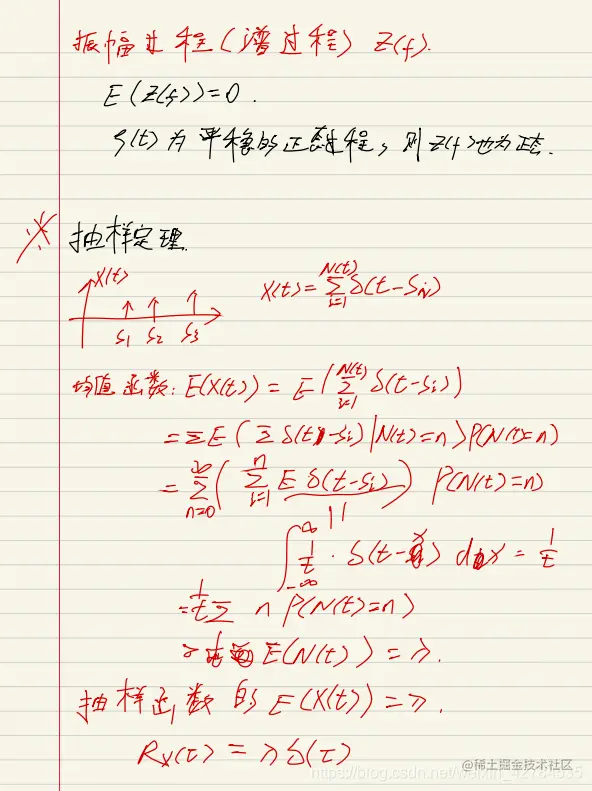 振幅过程(谱过程) Z(f).
E(Z(f))=0.
ζ(t)为平稳的正态过程,则Z(f)也为正态.
※ 抽样定理.
X(t)
S₁ S₂ S₃
X(t)=∑_{i=1}^{N(t)} δ(t-S_N)
均值函数: E(X(t)) = E(∑_{i=1}^{N(t)} δ(t-Si))
=∑E(∑δ(t-Si)|N(t)=n)P(N(t)=n)
=∑_{n=0}^{∞}(∑_{i=1}^{n} E δ(t-Si)) P(N(t)=n)
∫_{-∞}^{∞} 1/t · δ(t-x) dx = 1/t
=1/t ∑ n P(N(t)=n)
E(N(t))=λ.
抽样函数的E(X(t))=λ.
R_X(τ)=λδ(τ)
@稀土掘金技术社区